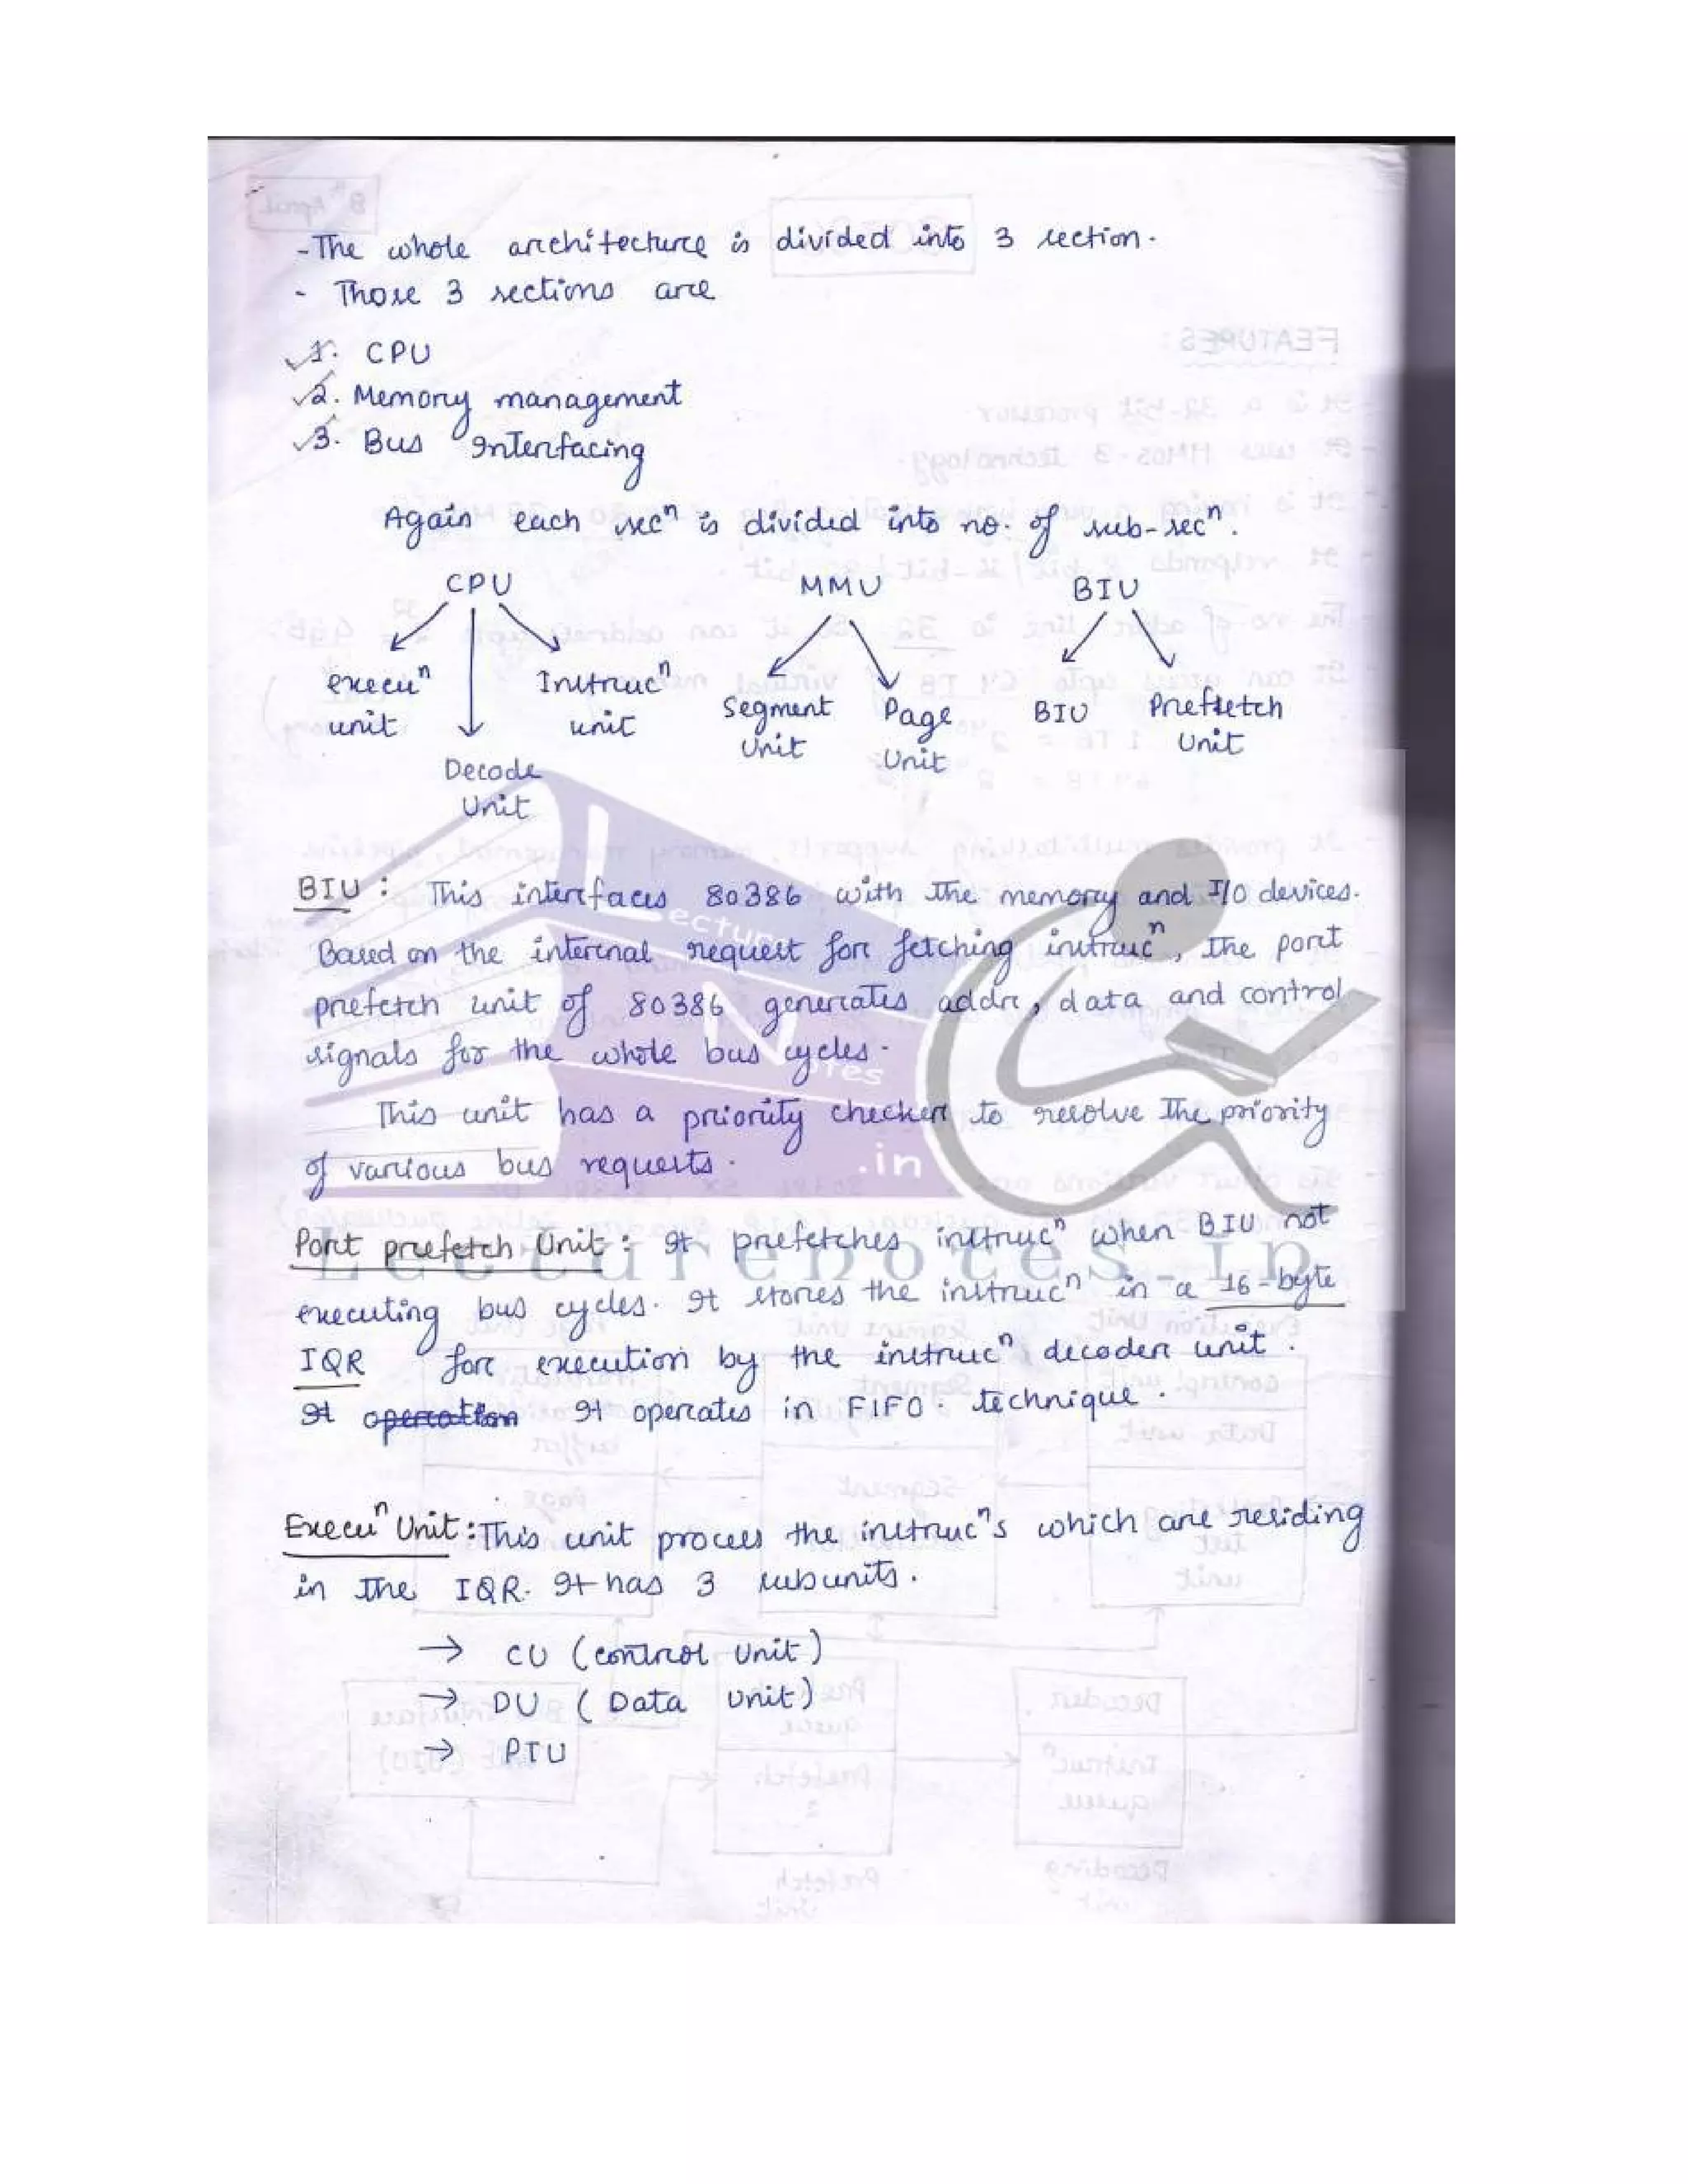 - The whole architecture is divided into 3 section.
- Those 3 sections are
1. CPU
2. Memory management
3. Bus Interfacing
Again each secⁿ is divided into no. of sub-secⁿ.
CPU MMU BIU
execuⁿ unit
Instrucⁿ unit
Segment Unit
Page Unit
BIU
Prefetch Unit
Decode Unit
BIU : This interfaces 80386 with the memory and I/O devices.
Based on the internal request for fetching instrucⁿ, the port
prefetch unit of 80386 generates addr, data and control
signals for the whole bus cycles.
This unit has a priority checker to resolve the priority
of various bus requests.
Port prefetch Unit : It prefetches instrucⁿ when BIU not
executing bus cycles. It stores the instrucⁿ in a 16-byte
IQR for execution by the instrucⁿ decoder unit.
It operation It operates in FIFO. technique.
Execuⁿ Unit : This unit process the instrucⁿs which are residing
in the IQR. It has 3 subunits.
→ CU (control Unit)
→ DU (Data Unit)
→ PTU
Lecture Notes .in
Lecturenotes.in
8ᵗʰ April
FEATURES :